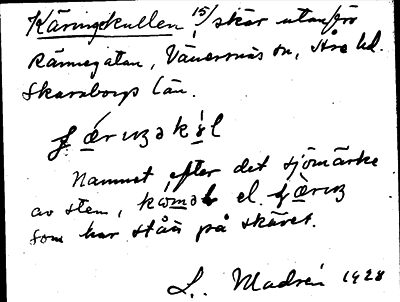 Käringkullen, 15/ skär utanför
Rännegatan, Vänersnäs sn, Åse hd.
Skaraborgs län.
Namnet efter det sjömärke
av sten, el.
som har stått på skäret.
L. Madsén 1928